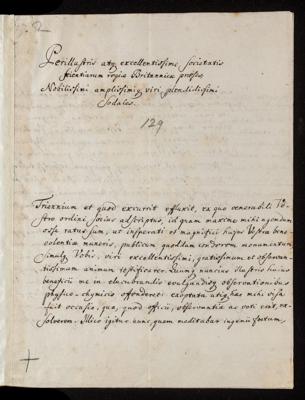 2
Perillustris atq excellentissimæ societatis
scientiarum regiæ Britannicæ præses
Nobilissimi amplissimiq viri splendidissimi
Sodales.
129
Triennium et quod excurrit effluxit, ex quo venerabili Ve
stro ordini, socius adscriptus, id quam maxime mihi agendum
esse ratus sum, ut insperati et magnifici hujus Vestræ bene
volentiæ muneris, publicum quoddam conderem monumentum
simulq Vobis, viri excellentissimi, gratissimum et observan
tissimum animum testificarer. Quumq nuncius illustris hujus
beneficii me in elucubrandis evulgandisq observationibus
physico-chymicis offenderet: exoptata utiq hæc mihi visa
fuit occasio, qua, quod officii, observantiæ ac voti erat, ex
solverem. Illico igitur tunc, quem meditabar ingenii foetum,